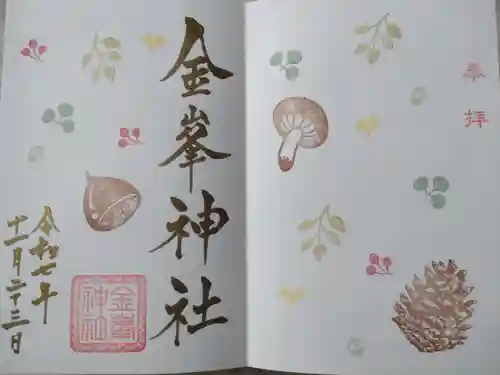 奉拝
金峯神社
令和七年
十一月二十三日
金峯神社